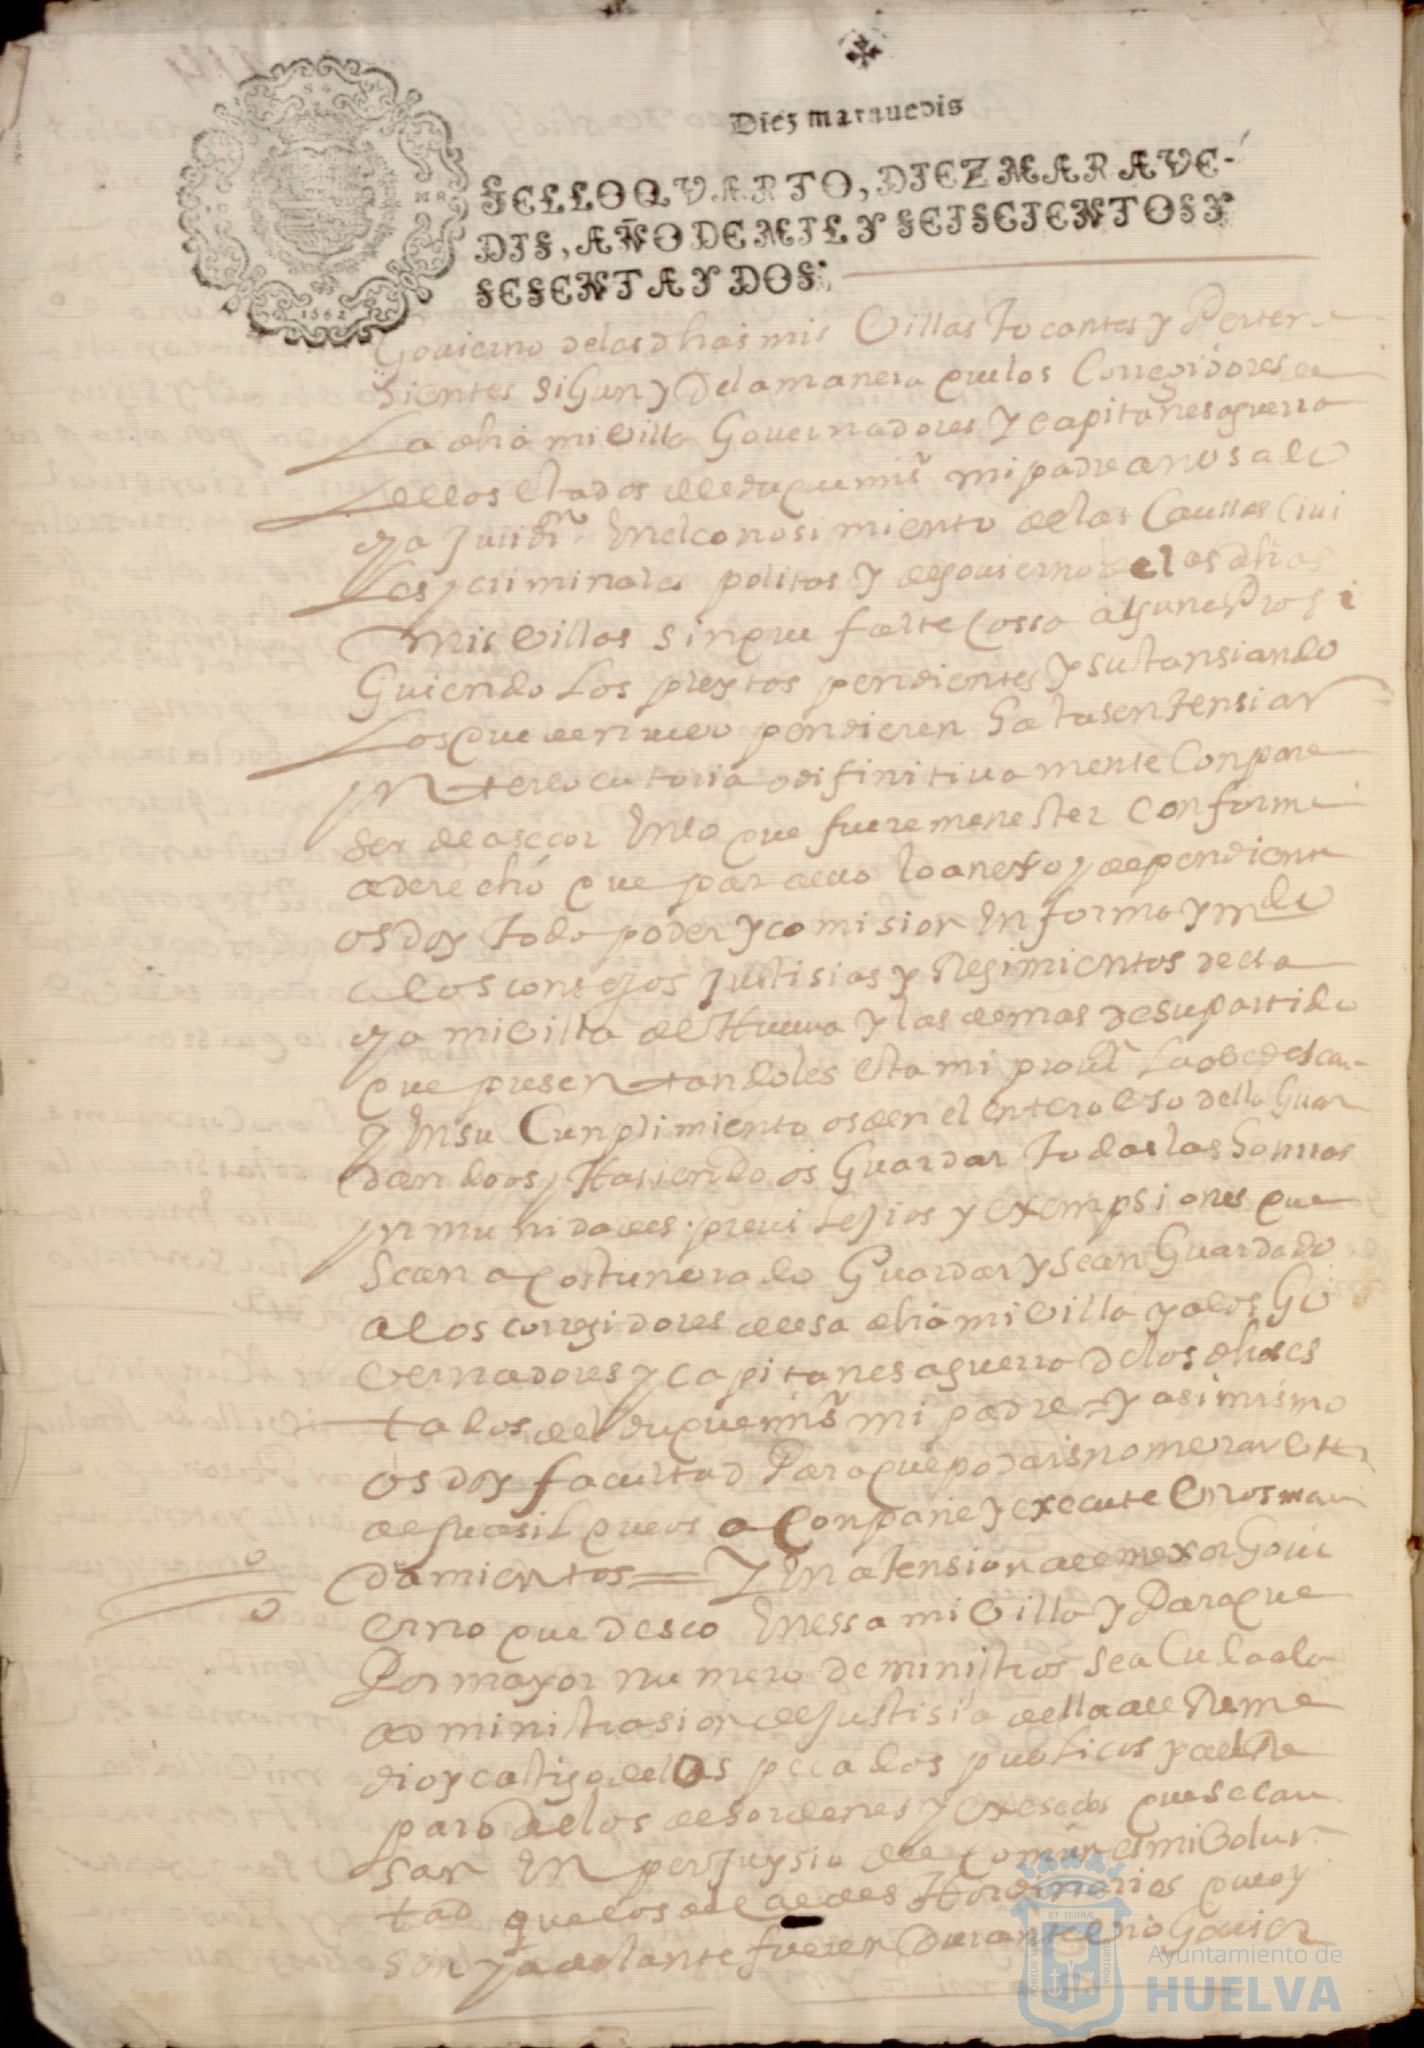 Diez marauedis
SELLO QVARTO, DIEZ MARAVE-
DIS, AÑO DE MIL Y SEISCIENTOS Y
SESENTA Y DOS.
1662
Gouierno de las dhas mis Villas tocantes y Perten
sientes sigun y de la manera que los Corregidores de
La dha mi Villa Gouernadores y capitanes aguerra
de los estados del duque mi sr mi padre an usado
ya Juridn En el conosimiento de las Caussas Ciui
Les y criminales politas y de gouierno de las dhas
mis Villas sin que falte Cossa alguna Prosi
Guiendo Los pleytos pendientes y sustansiando
Los que de nueuo pendieren hasta sentensiar
ynterlocutoria o difinitiuamente Con pare
ser de asecor En lo que fuere menester conforme
a derecho que para ello lo anexo y dependiente
os doy todo poder y comision En forma y mdo
a los consejos Justisias y Regimientos desta
ya mi Villa de Huelua y las demas de su partido
que presentandoles esta mi proun La obedescan
y En su Cunplimiento os den el entero Uso della Guar
dandoos y Hasiendo os Guardar todas las honrras
ynmunidades preuilejios y exempsiones que
sean acostunbrado Guardar y sean Guardado
a los corregidores de esa dha mi Villa y a los Go
uernadores y capitanes aguerra de los dhos es
tados del duque mi sr mi padre = y asi mismo
os doy facultad Para que podais nomerar Un
alguasil que os aConpañe y execute Uros man
damientos = Y En atension al mexor Goui
erno que deseo En essa mi Villa y Para que
Por mayor numero de ministros sea Cu
administrasion de Justisia della de Reme
dio y castigo de los pecados publicos y del Re
paro de los desordenes y exsesos que se cau
san En perjuysio del comun es mi Volun
tad que los alcaldes Hordinarios que oy
son y adelante fueren durante Uro Gouier
ET TERRÆ
CUSTODIA
Ayuntamiento de
HUELVA